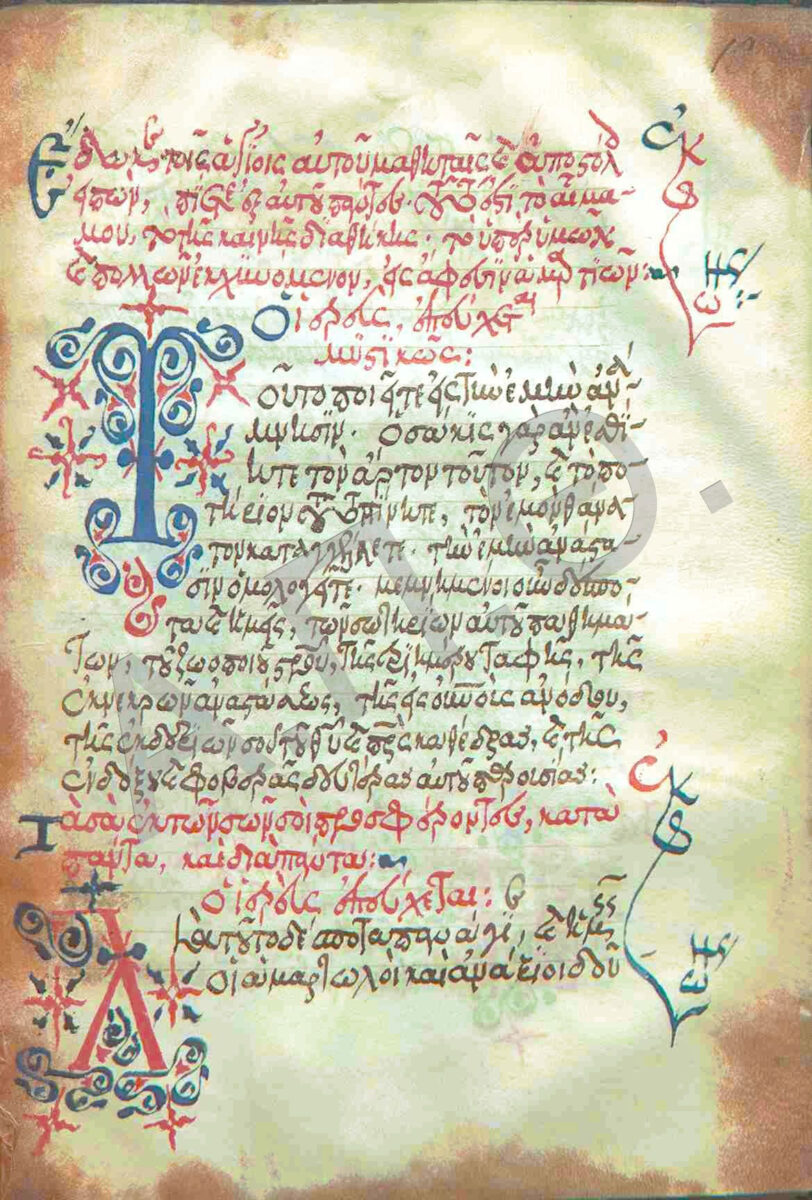 Ἔδωκε τοῖς ἁγίοις αὐτοῦ μαθηταῖς καὶ ἀποστόλ
εἰπών, πίετε ἐξ αὐτοῦ πάντες· τοῦτό ἐστι τὸ αἷμα-
μου, τὸ τῆς καινῆς διαθήκης· τὸ ὑπὲρ ὑμῶν
καὶ πολλῶν ἐκχυνόμενον, εἰς ἄφεσιν ἁμαρτιῶν:
Ὁ ἱερεὺς, ἐπεύχεται
μυστικῶς:
Τοῦτο ποιεῖτε εἰς τὴν ἐμὴν ἀνά-
μνησιν· ὁσάκις γὰρ ἂν ἐσθί-
ητε τὸν ἄρτον τοῦτον, καὶ τὸ πο-
τήριον τοῦτο πίνητε, τὸν ἐμὸν θάνα-
τον καταγγέλλετε· τὴν ἐμὴν ἀνάστα-
σιν ὁμολογεῖτε· μεμνημένοι οὖν δέσπο-
τα καὶ ἡμεῖς, τῶν σωτηρίων αὐτοῦ παθημά-
των, τοῦ ζωοποιοῦ σταυροῦ, τῆς τριημέρου ταφῆς, τῆς
ἐκ νεκρῶν ἀναστάσεως, τῆς εἰς οὐνοὺς ἀνόδου,
τῆς ἐκ δεξιῶν σοῦ τοῦ θυ καὶ πρς καθέδρας, καὶ τῆς
ἐνδόξου καὶ φοβερᾶς δευτέρας αὐτοῦ παρουσίας:
Τὰ σὰ ἐκ τῶν σῶν σοὶ προσφέροντες, κατὰ
πάντα, καὶ διὰ πάντα:
Ὁ ἱερεὺς ἐπεύχεται:
Διὰ τοῦτο δέσποτα παναγιε, καὶ ἡμεῖς
οἱ ἁμαρτωλοὶ καὶ ἀνάξιοι δοῦ-
ἐκφώνως
ἐκφώνως